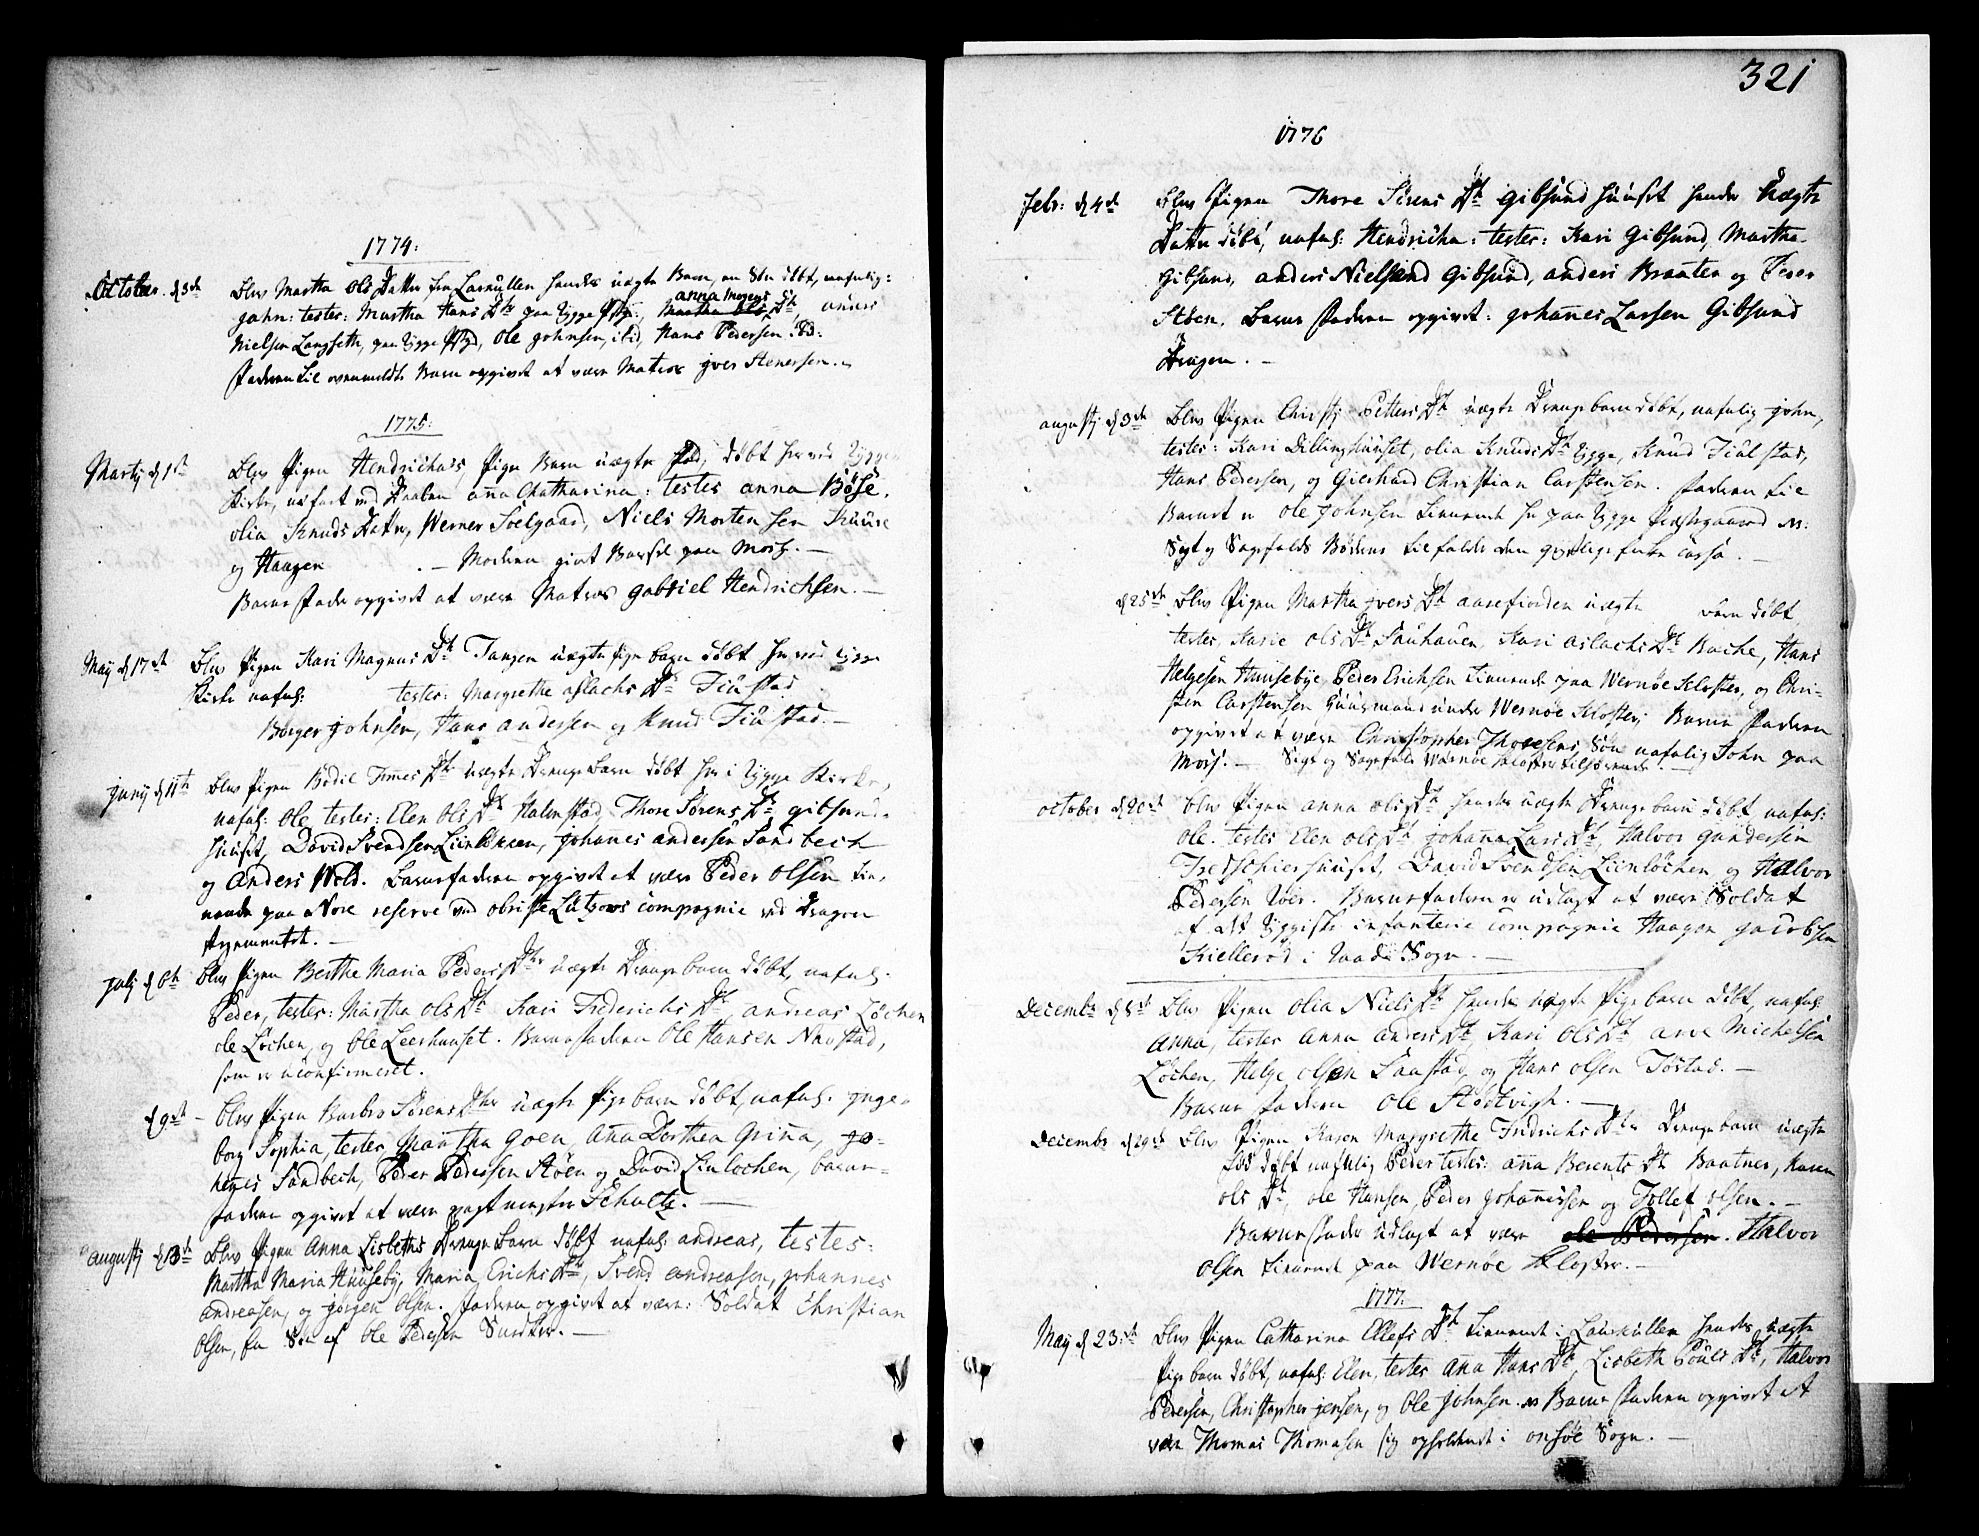 1774:
October. d 5te Blev Martha Ols Datter fra Larkullen hendes uægte Barn, en Søn døbt, nafnlig:
John: testes: Martha Hans Dtr paa Rygge Præstgd:, anna Mogens Dtr, anders
Nielsen Langseth, paa Rygge Prgd, Ole Johnsen, ibid, Hans Pedersen. ibd:
Faderen til ovenmeldte Barn opgivet at være Matros Iver Stenersen.
1775:
Martij d 1te Blev Pigen Hendrichas, Pige Barn uægte fød, døbt her ved Rygge
Kirke, nafnet ved Daaben Anna Chatharina: testes anna Bøse,
olia Knuds Datter, Werner Soelgaard, Niels Mortensen Kuure
og Haagen . - Moderen givet Barsel paa Moss. -
Barnefader opgivet at være Matros Gabriel Hendrichsen. -
May d 17de Blev Pigen Kari Magnus Dtr Tangen uægte Pige barn døbt her ved Rygge
Kirke nafnl: testes: Margrethe Aslachs Dtr Fiustad
Børger Johnsen, Hans Andersen og Knud Fiustad. -
Junij d 11te Blev Pigen Bodil Times Dtr uægte Drenge Barn døbt her i Rygge Kirke,
nafnl: Ole testes: Elen Ols Dtr Halmstad, Thore Sørens Dtr gibsund-
huuset, David Svendsen Lienløkken, Johanes andersen Sandbech
og Anders Wold. Barnefaderen opgivet at være Peder Olsen tie-
nende paa Nore reserve ved obriste Lützows compagnie ved Dragon
Regimentet. -
Julij d 6te Blev Pigen Berthe Maria Peders Dtr uægte Drenge barn døbt, nafnl.
Peder, testes: Martha Ols Dtr Kari Friderichs Dtr andreas Løchen
ole Løchen, og Ole Leerhuuset. Barnefaderen Ole Hansen Navstad,
som er uconfirmeret.
d 9de - Blev Pigen Barbro Sørens Dtr uægte Pige barn døbt, nafnl. Inge-
borg Sophia, testes Martha Goen, Anna Dorthea Grina, Jo-
hanes Sandbech, Peder Pedersen Støen og David Lienlochen, barne-
faderen opgivet at være Schultz. -
Augustij d 13de Blev Pigen Anna Lisbeths Drenge Barn døbt nafnl: andreas, testes:
Martha Maria Huuseby, Maria Erichs Dtr, Svend andreasen, Johannes
andreasen, og Jørgen Olsen. Faderen opgivet at være: Soldat Christian
Olsen, en Søn af Ole Pedersen. -
321
1776
Febr: d 4de Blev Pigen Thore Sørens Dtr Gibsund huuset hendes uægte
Datter døbt, nafnl: Hendricha: testes: Kari Gibsund, Martha
Gibsund, anders Nielsen Gibsund, anders Braaten og Peder
Støen. Barne Faderen opgivet: Johannes Larsen Gibsund
Dragon. -
augustij d 3de Blev Pigen Christj Petters Dtr uægte Drenge barn døbt, nafnlig John,
testes: Kari Dillinghuuset, olia Knuds Dtr Rygge, Knud Fiulstad,
Hans Pedersen, og Gierhard Christian Carstensen. Faderen til
Barnet er Ole Johnsen tienende her paa Rygge Præstegaard NB:
Sigt og Sagefalds Bøderne tilfalder den geistlige enke cassa. -
d 25de Blev Pigen Martha Ivers Dtr aarefiorden uægte barn døbt,
testes, Karie Ols Dtr Sauhauen, Kari aslachs Dtr Bache, Hans
Helgesen Huusebye, Peder Erichsen tienende paa Wernøe Kloster, og Chri-
sten Carstensen Huusmand under Wernøe Kloster; Barne Faderen
opgivet at være Christopher Thoresens Søn nafnlig John paa
Moss. - Sigt og Sagefald Wærnøe Kloster tilhørende. -
october d 20de Blev Pigen anna Ols Dtr hendes uægte Drenge barn døbt nafnl:
Ole. testes Elen Ols Dtr Johana Lars Dtr, Halvor Gundersen
David Svendsen Lienløchen og Halvor
Pedersen Roer. Barnefaderen er udlagt at være Soldat
af det Ryggiske infanterie compagnie Haagen Jacobsen
Kiellerød i Vaadø Sogn. -
Decembr d 8de Blev Pigen olia Niels Dtr hendes uægte Pige barn døbt, nafnl:
Anna, testes Anna Anders Dtr Kari Ols Dtr arve Michelsen
Løchen, Helge Olsen Saustad, og Hans Olsen Tøstad. -
Barne Faderen Ole Slottvigh. -
Decembr d 29de Blev Pigen Karen Margrethe Fridrichs Dtr Drenge barn uægte
fød døbt nafnlig Peder testes: anna Berents Dtr Baatner, Karen
Ols Dtr, ole Hansen, Peder Johannessen og Tollef Olsen. -
Barne Fader udlagt at være ole Pedersen. Halvor
Olsen tienende paa Wernøe Kloster. -
1777.
May d 23de Blev Pigen Catharina Ellefs Dtr tienende i Laurkullen hendes uægte
Pige barn døbt, nafnl: Elen, testes Anna Hans Dtr, Lisbeth Pouls Dtr, Halvor
Pedersen, Christopher Jensen, og Ole Johnsen. NB Barne Faderen opgivet at
være Thomas Thomasen sig opholdende i onsøe Sogn. -